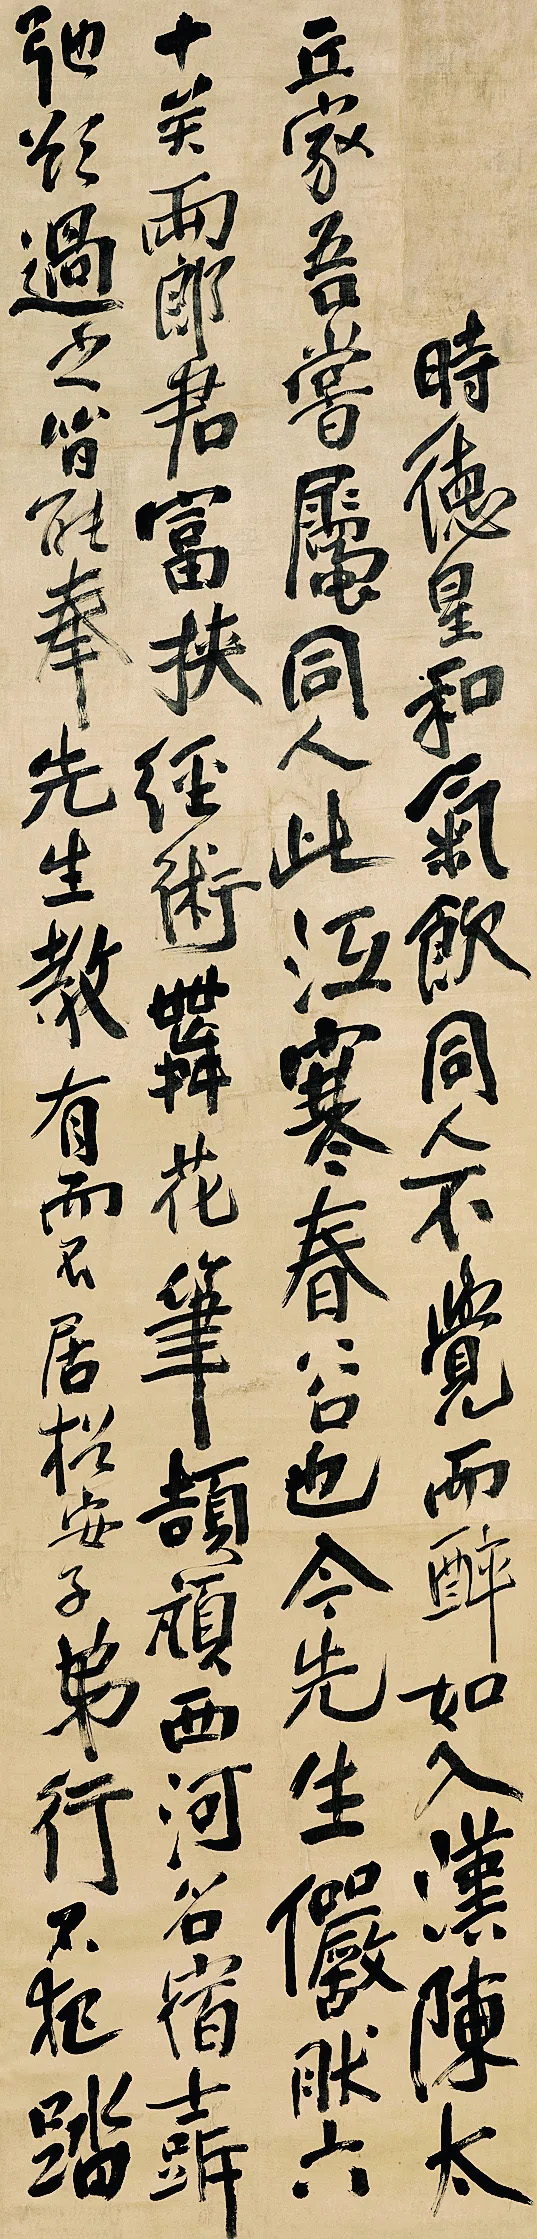 時德星和氣飲同人不覺而醉如入漢陳太
丘家吾嘗屬同人此沍寒春谷也今先生儼然六
十矣兩郎君富挾經術舞花筆頡頏西河名宿士訢
弛欲過之皆能奉先生教有而不居松安子弟行不犯踏